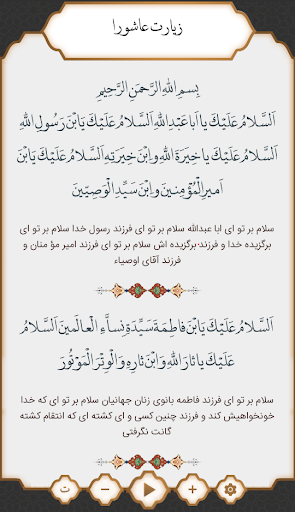 زیارت عاشورا
بِسمِ اللهِ الرَّحمَنِ الرَّحِیمِ
اَلسَّلامُ عَلَیْکَ یا اَبا عَبْدِاللهِ اَلسَّلامُ عَلَیْکَ یَابْنَ رَسُولِ اللهِ
اَلسَّلامُ عَلَیْکَ یا خِیَرَةَ اللهِ وابْنَ خِیَرَتِهِ اَلسَّلامُ عَلَیْکَ یَابْنَ
اَمیرِالْمُؤْمِنینَ وابْنَ سَیِّدِ الْوَصِیّینَ
سلام بر تو ای ابا عبدالله سلام بر تو ای فرزند رسول خدا سلام بر تو ای
برگزیده خدا و فرزند برگزیده اش سلام بر تو ای فرزند امیر مؤ منان و
فرزند آقای اوصیاء
اَلسَّلامُ عَلَیْکَ یَابْنَ فاطِمَةَ سَیِّدَةِ نِساَّءِ الْعالَمینَ اَلسَّلامُ
عَلَیْکَ یا ثارَ اللهِ وابْنَ ثارِهِ والْوِتْرَ الْمَوْتُورَ
سلام بر تو ای فرزند فاطمه بانوی زنان جهانیان سلام بر تو ای که خدا
خونخواهیش کند و فرزند چنین کسی و ای کشته ای که انتقام کشته
گانت نگرفتی
ت